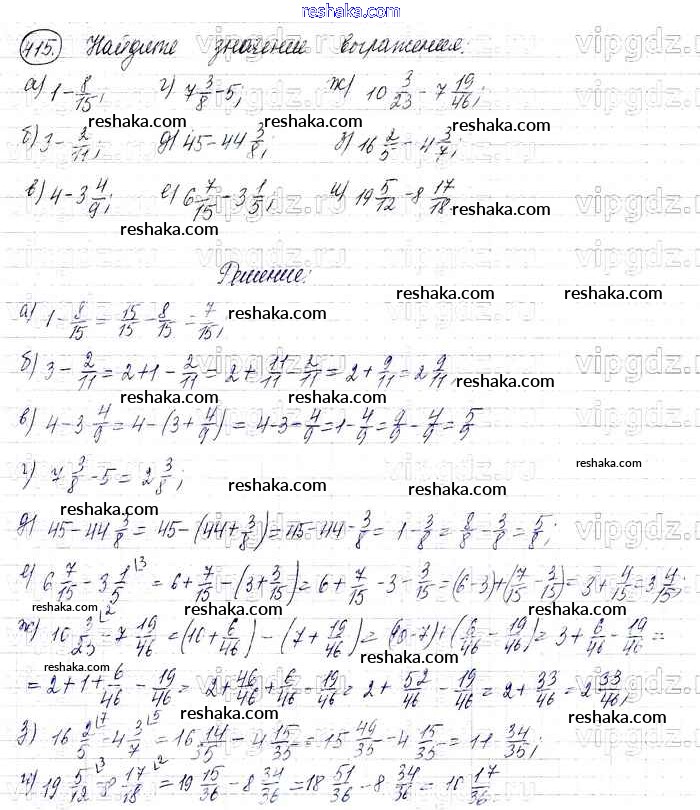 reshaka.com
415. Найдите значение выражения:
а) 1 - 8/15; г) 7 3/8 - 5; ж) 10 3/23 - 7 19/46;
б) 3 - 2/11; д) 45 - 44 3/8; з) 16 2/5 - 4 3/7;
в) 4 - 3 4/9; е) 6 7/15 - 3 1/5; и) 19 5/12 - 8 17/18.
Решение:
а) 1 - 8/15 = 15/15 - 8/15 = 7/15;
б) 3 - 2/11 = 2 + 1 - 2/11 = 2 + 11/11 - 2/11 = 2 + 9/11 = 2 9/11;
в) 4 - 3 4/9 = 4 - (3 + 4/9) = 4 - 3 - 4/9 = 1 - 4/9 = 9/9 - 4/9 = 5/9
г) 7 3/8 - 5 = 2 3/8;
д) 45 - 44 3/8 = 45 - (44 + 3/8) = 45 - 44 - 3/8 = 1 - 3/8 = 8/8 - 3/8 = 5/8;
е) 6 7/15 - 3 1/5 ⌊3 = 6 + 7/15 - (3 + 3/15) = 6 + 7/15 - 3 - 3/15 = (6 - 3) + (7/15 - 3/15) = 3 + 4/15 = 3 4/15;
ж) 10 3/23 ⌊2 - 7 19/46 = (10 + 6/46) - (7 + 19/46) = (10 - 7) + (6/46 - 19/46) = 3 + 6/46 - 19/46 =
= 2 + 1 + 6/46 - 19/46 = 2 + 46/46 + 6/46 - 19/46 = 2 + 52/46 - 19/46 = 2 + 33/46 = 2 33/46;
з) 16 2/5 ⌊7 - 4 3/7 ⌊5 = 16 14/35 - 4 15/35 = 15 49/35 - 4 15/35 = 11 34/35;
и) 19 5/12 ⌊3 - 8 17/18 ⌊2 = 19 15/36 - 8 34/36 = 18 51/36 - 8 34/36 = 10 17/36.